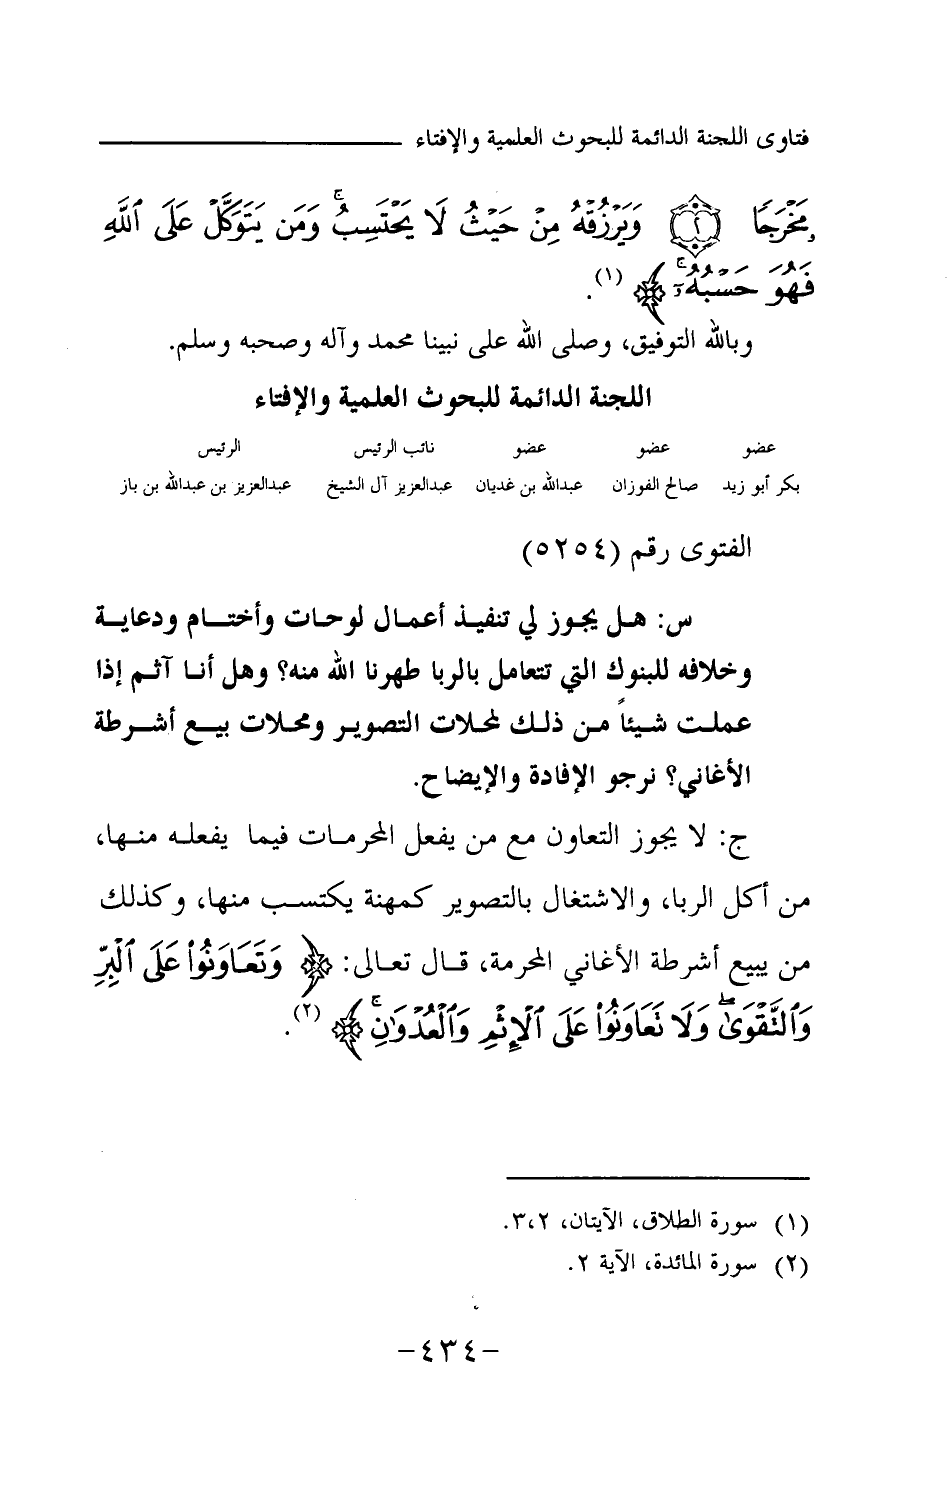 فتاوى اللجنة الدائمة للبحوث العلمية والإفتاء
مَخْرَجًا ٢ وَيَرْزُقْهُ مِنْ حَيْثُ لَا يَحْتَسِبُ ۚ وَمَن يَتَوَكَّلْ عَلَى ٱللَّهِ
فَهُوَ حَسْبُهُۥٓ ۚ ﴾ (١).
وبالله التوفيق، وصلى الله على نبينا محمد وآله وصحبه وسلم.
اللجنة الدائمة للبحوث العلمية والإفتاء
عضو عضو عضو نائب الرئيس الرئيس
بكر أبو زيد صالح الفوزان عبدالله بن غديان عبدالعزيز آل الشيخ عبدالعزيز بن عبدالله بن باز
الفتوى رقم (٥٢٥٤)
س: هل يجوز لي تنفيذ أعمال لوحات وأختام ودعاية
وخلافه للبنوك التي تتعامل بالربا طهرنا الله منه؟ وهل أنا آثم إذا
عملت شيئاً من ذلك لمحلات التصوير ومحلات بيع أشرطة
الأغاني؟ نرجو الإفادة والإيضاح.
ج: لا يجوز التعاون مع من يفعل المحرمات فيما يفعله منها،
من أكل الربا، والاشتغال بالتصوير كمهنة يكتسب منها، وكذلك
من يبيع أشرطة الأغاني المحرمة، قال تعالى: ﴿ وَتَعَاوَنُوا۟ عَلَى ٱلْبِرِّ
وَٱلتَّقْوَىٰ ۖ وَلَا تَعَاوَنُوا۟ عَلَى ٱلْإِثْمِ وَٱلْعُدْوَٰنِ ۚ ﴾ (٢).
(١) سورة الطلاق، الآيتان، ٣،٢.
(٢) سورة المائدة، الآية ٢.
-٤٣٤-